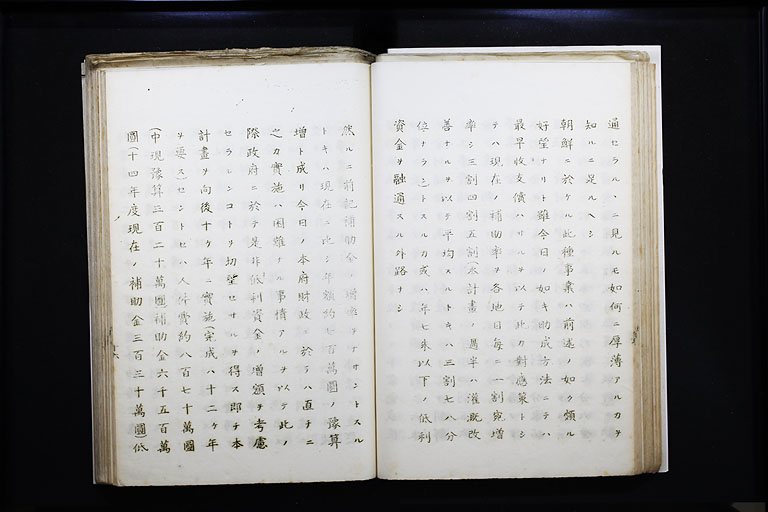 通セラルヽニ見ルモ如何ニ厚薄アルカヲ
知ルニ足ルヘシ
朝鮮ニ於ケル此種事業ハ前述ノ如ク頗ル
好望ナリト雖今日ノ如キ助成方法ニテハ
最早收支償ハサルヲ以テ此カ對應策トシ
テハ現在ノ補助率ヲ各地目每ニ一割宛增
率シ三割四割五割(本計畫ノ過半ハ灌漑改
善ナルヲ以テ平均スルトキハ三割七八分
位ナラン)トスルカ或ハ年七朱以下ノ低利
資金ヲ融通スル外路ナシ
然ルニ前記補助金ノ增率ヲナサントスル
トキハ現在ニ比シ年額約七百萬圓ノ豫算
增ト成リ今日ノ本府財政ニ於テハ直チニ
之カ實施ハ困難ナル事情アルヲ以テ此ノ
際政府ニ於テ是非低利資金ノ增額ヲ考慮
セラレンコトヲ切望セサルヲ得ス卽チ本
計畫ヲ向後十ケ年ニ實施(完成ハ十二ケ年
ヲ要ス)セントセハ人件費約八百七十萬圓
(中現豫算三百二十萬圓)補助金六千五百萬
圓(十四年度現在ノ補助金三百三十萬圓)低